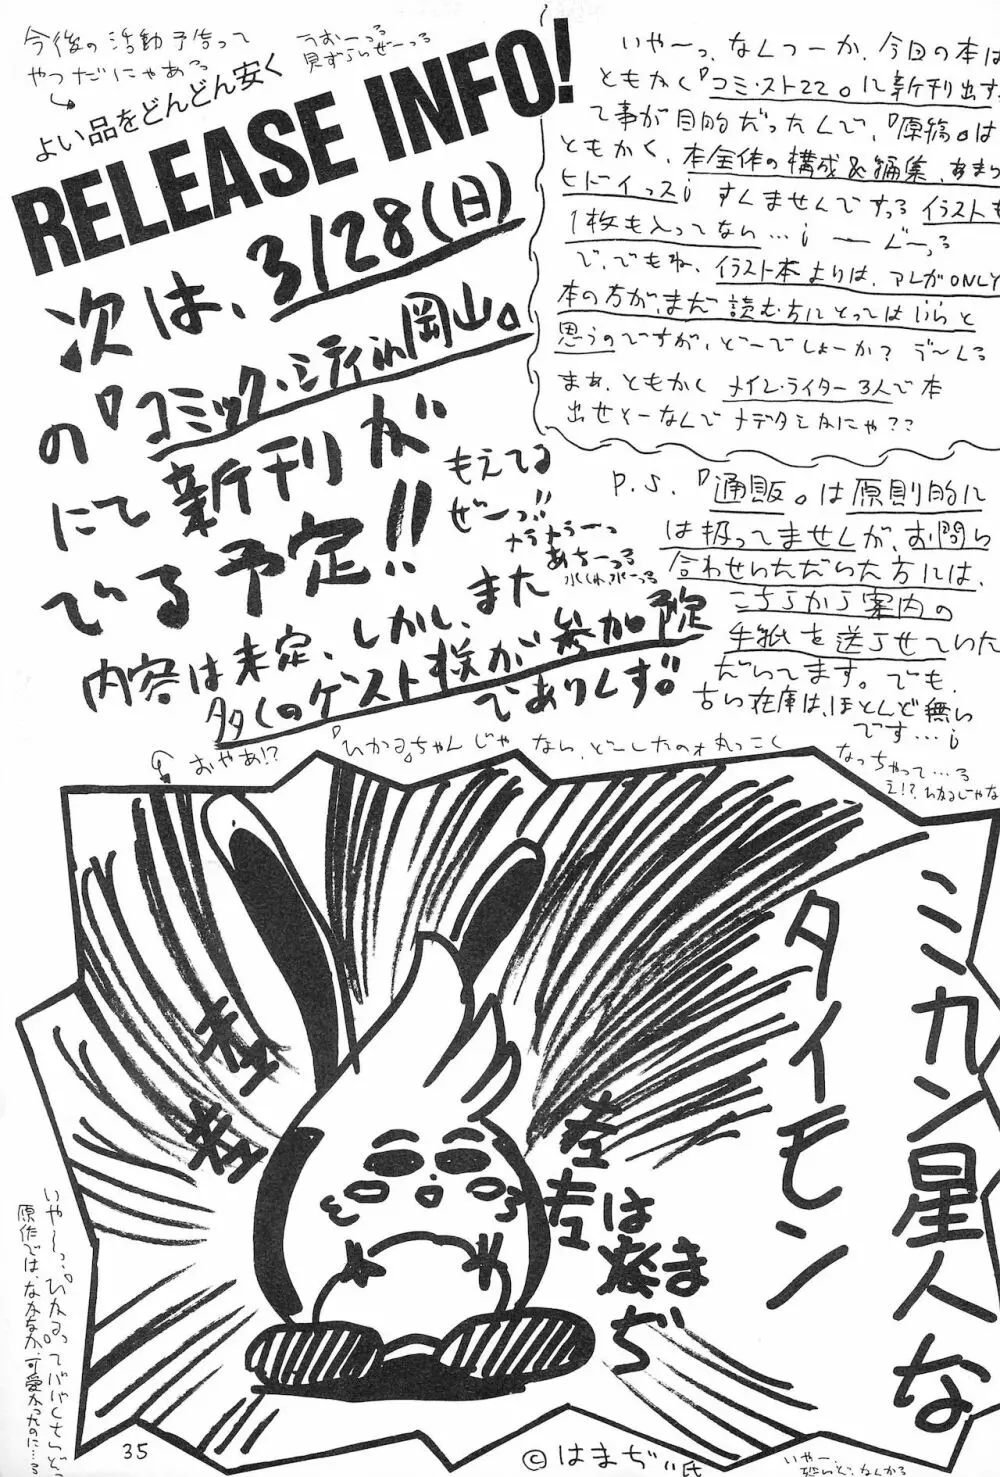 今後の活動予告って
やつだにゃある
うおーっる
見ずらいぜーっる
よい品をどんどん安く
RELEASE INFO!
次は、3/28(日)
の『コミック・シティin岡山』
にて新刊が
でいる予定!!
もえてる
ぜーっ!!
あちーっる
内容は未定、しかし、また
多くのゲスト様が参加予定
でありんす。
いや〜っ、なんつーか、今回の本は
ともかく『コミ・スト22』に新刊出す
て事が目的だったんで、『原稿』は
ともかく、本全体の構成&編集、あまり
ヒドイっスi すんませんですっる イラストも
1枚も入ってない…i
で、でもね、イラスト本よりは、アレがONLY
本の方が、まだ読む方にとってはいいと
思うのですが、どーでしょーか?
まぁ、ともかく メイン・ライター3人で本
出せとーなんで メデタシかにゃ??
P.S. 『通販』は原則的に
は扱ってませんが、お問い
合わせいただいた方には、
こちらから案内の
手紙を送らせていた
だいてます。でも、
古い在庫は、ほとんど無い
です…i
おやあ!?
『ひかる』ちゃんじゃない、どーしたのォ丸っこく
なっちゃって…る
え!?ひかるじゃな
ミカン星人な
タイモン
はままぢ
いや〜っ、『ひかる』って
原作では、なかなか、可愛かったのに…る
35
©はまぢぃ氏
いやー、